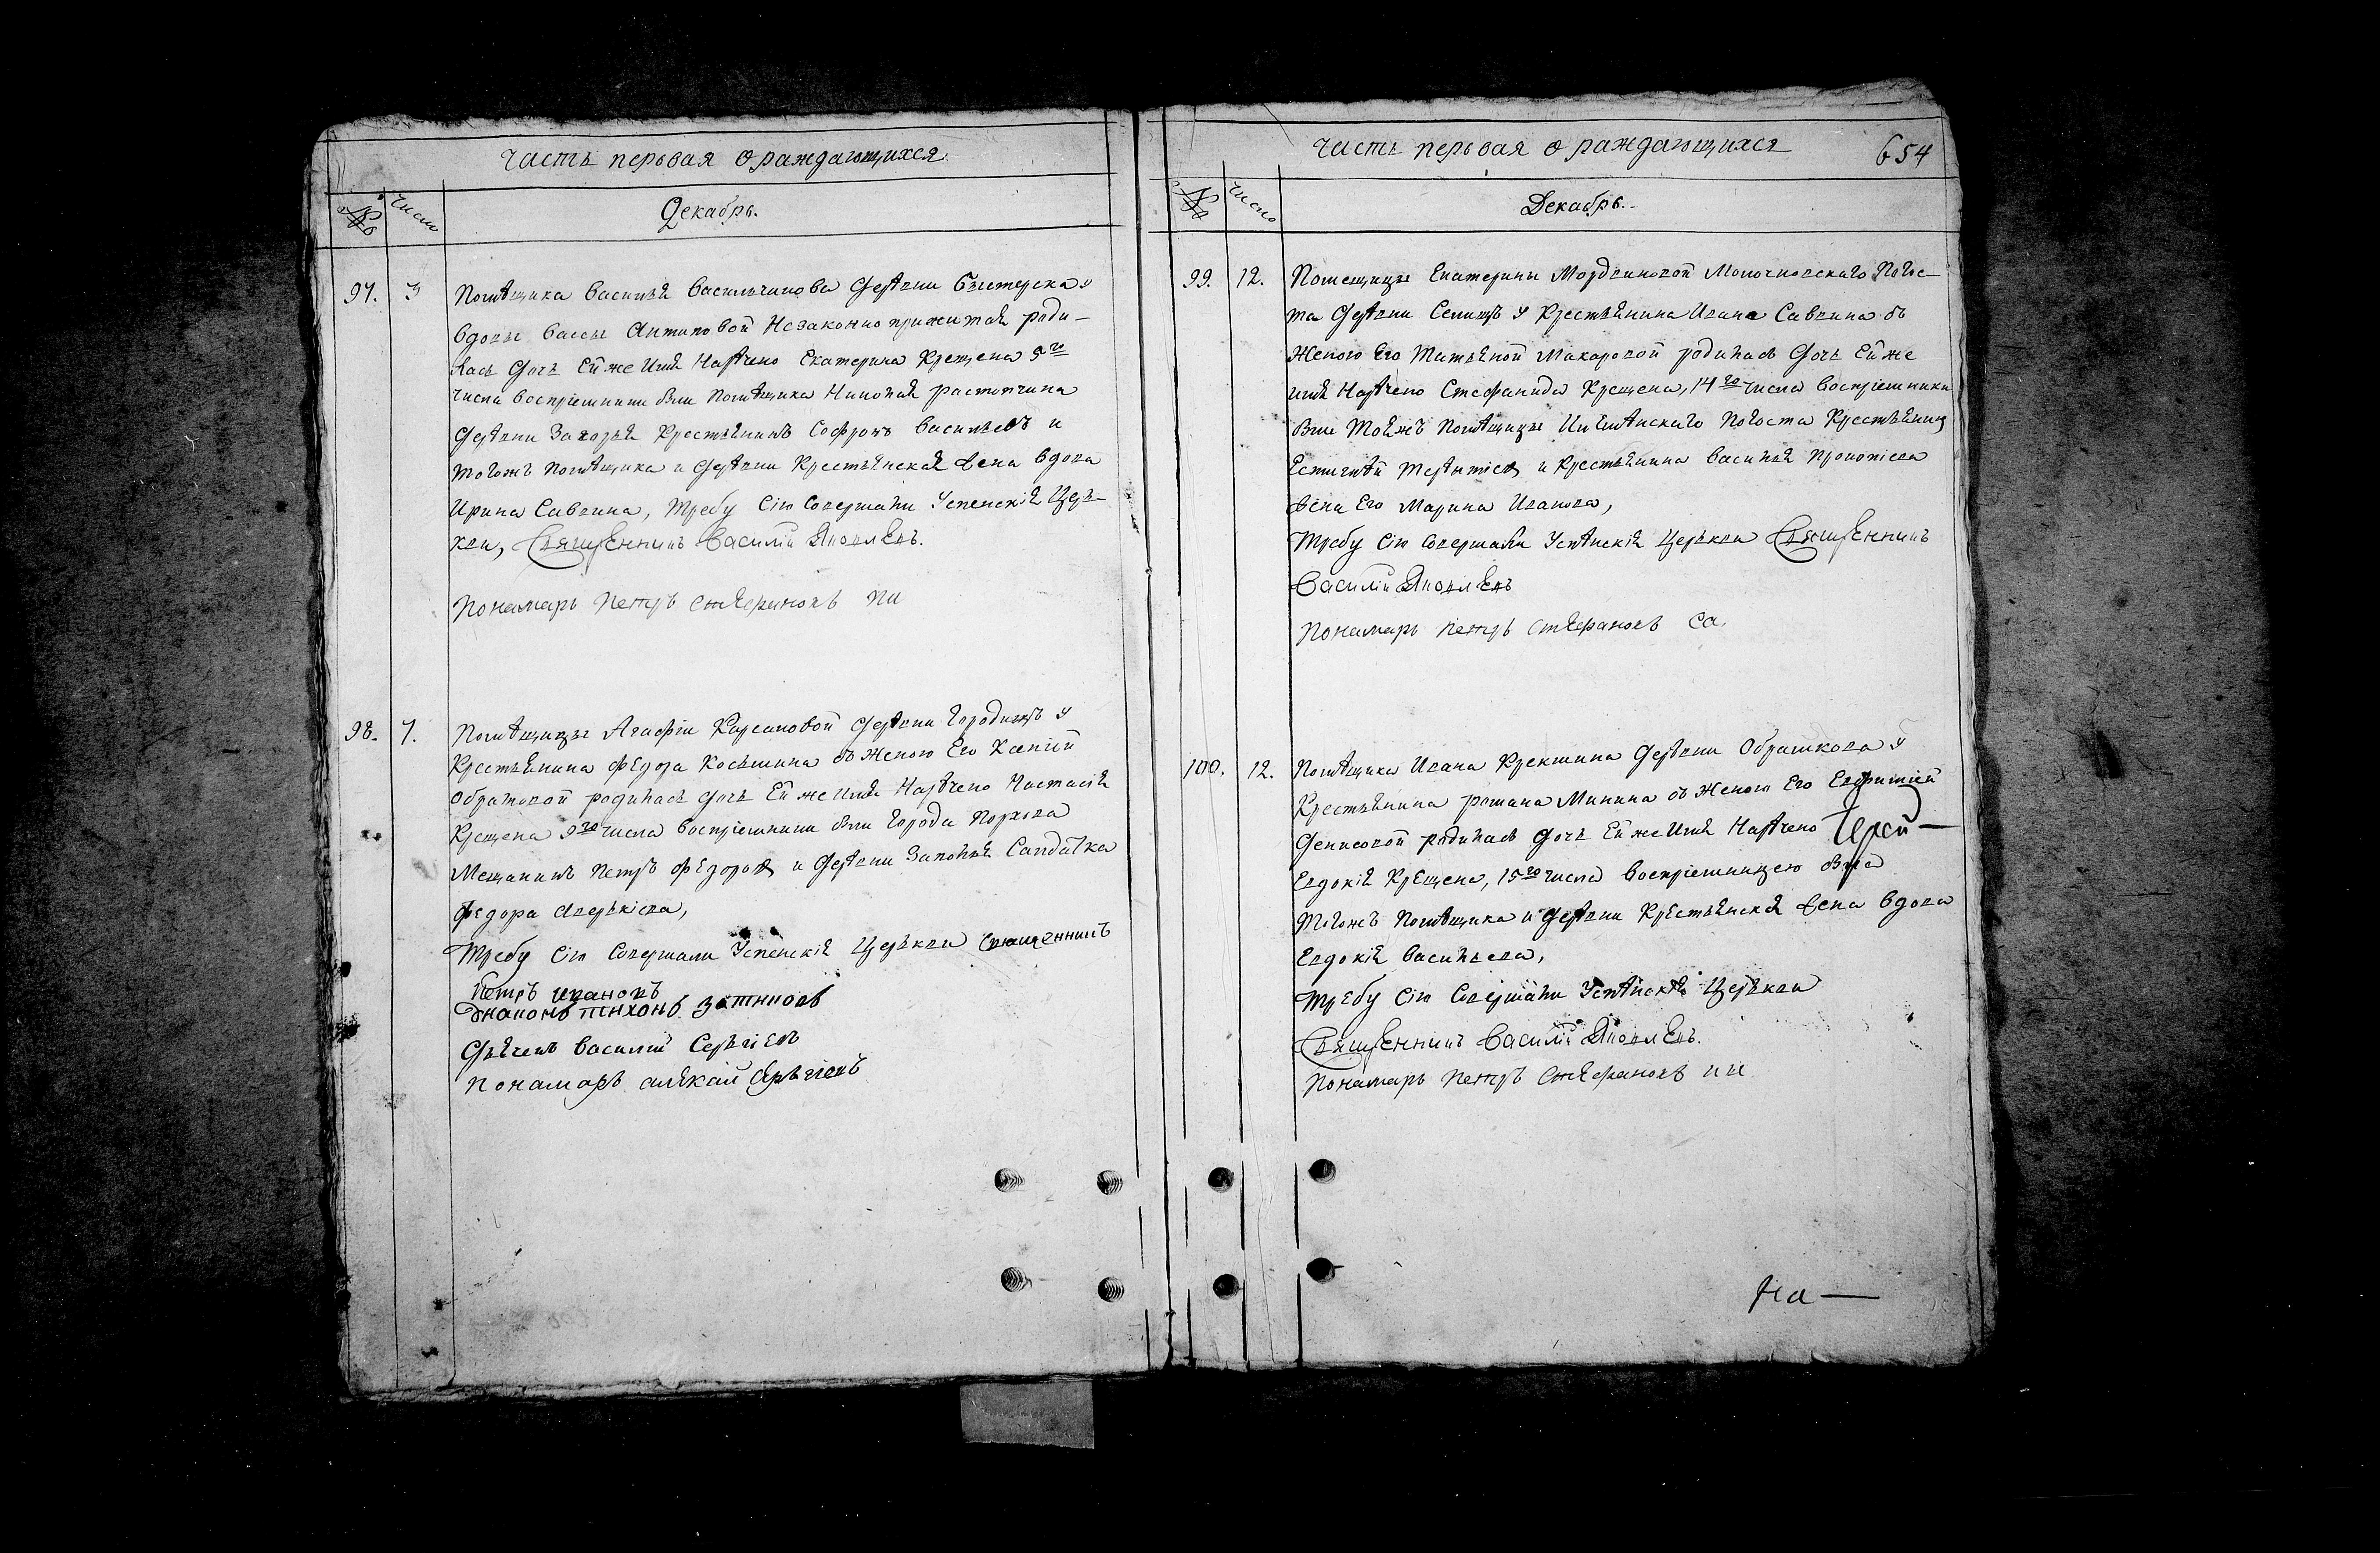 часть первая о раждающихся
№ число Декабрь.
97. 3 Помѣщика Василья Васильчикова Деревни Быстерска у
вдовы Вассы Антиповой Незаконно прижитая роди-
лась Дочь Ей же Имя Наречено Екатерина Крещена 5го
числа Восприемники были Помѣщика Николая растопчина
Деревни Заполья Крестьянинъ Софронъ Васильевъ и
тогожъ Помѣщика и Деревни Крестьянская Жена вдова
Ирина Саввина, Требу Сію Совершали Успенскія Церь-
кви, Священникъ Василій Яковлевъ.
Пономарь Петръ Стефановъ
98. 7. Помѣщицы Агафіи Карсаковой Деревни Городищъ у
Крестьянина Федора Косьмина съ Женою Его Ксенией
родилась Дочь Ей же Имя Наречено Настасія
Крещена 9го числа Восприемники были Города Порхова
Мещанинъ Петръ Федоровъ и Деревни Заполья Салдатка
Федора Аверькіева,
Требу Сію Совершали Успенскія Церькви Священникъ
Петръ Ивановъ
Диаконъ Тихонъ
Дьячекъ Василий Сергіевъ
Пономарь Сергіевъ
часть первая о раждающихся 654
№ число Декабрь.
99. 12. Помещицы Екатерины Мордвиновой Молочковскаго Погос-
та Деревни Селищъ у Крестьянина Ивана Саввина съ
Женою Его Татьяной Макаровой родилась Дочь Ей же
имя Наречено Стефанида Крещена, 14го числа Восприемники
Были Тояжъ Помѣщицы Погоста Крестьянинъ
и Крестьянина Василья Прокопіева
Жена Его Марина Иванова,
Требу Сію Совершали Успѣнскія Церькви Священникъ
Василій Яковлевъ
Пономарь Петръ Стефановъ
100. 12. Помѣщика Ивана Крекшина Деревни Обрашкова у
Крестьянина романа Минина съ Женою Его Евфимией
Денисовой родилась дочь Ей же Имя Наречено
Евдокія Крещена, 15го числа Восприемницею Была
Тогожъ Помѣщика и Деревни Крестьянская Жена вдова
Евдокія Васильева,
Требу Сію Совершали Успѣнскія Церькви
Священникъ Василій Яковлевъ.
Пономарь Петръ Стефановъ